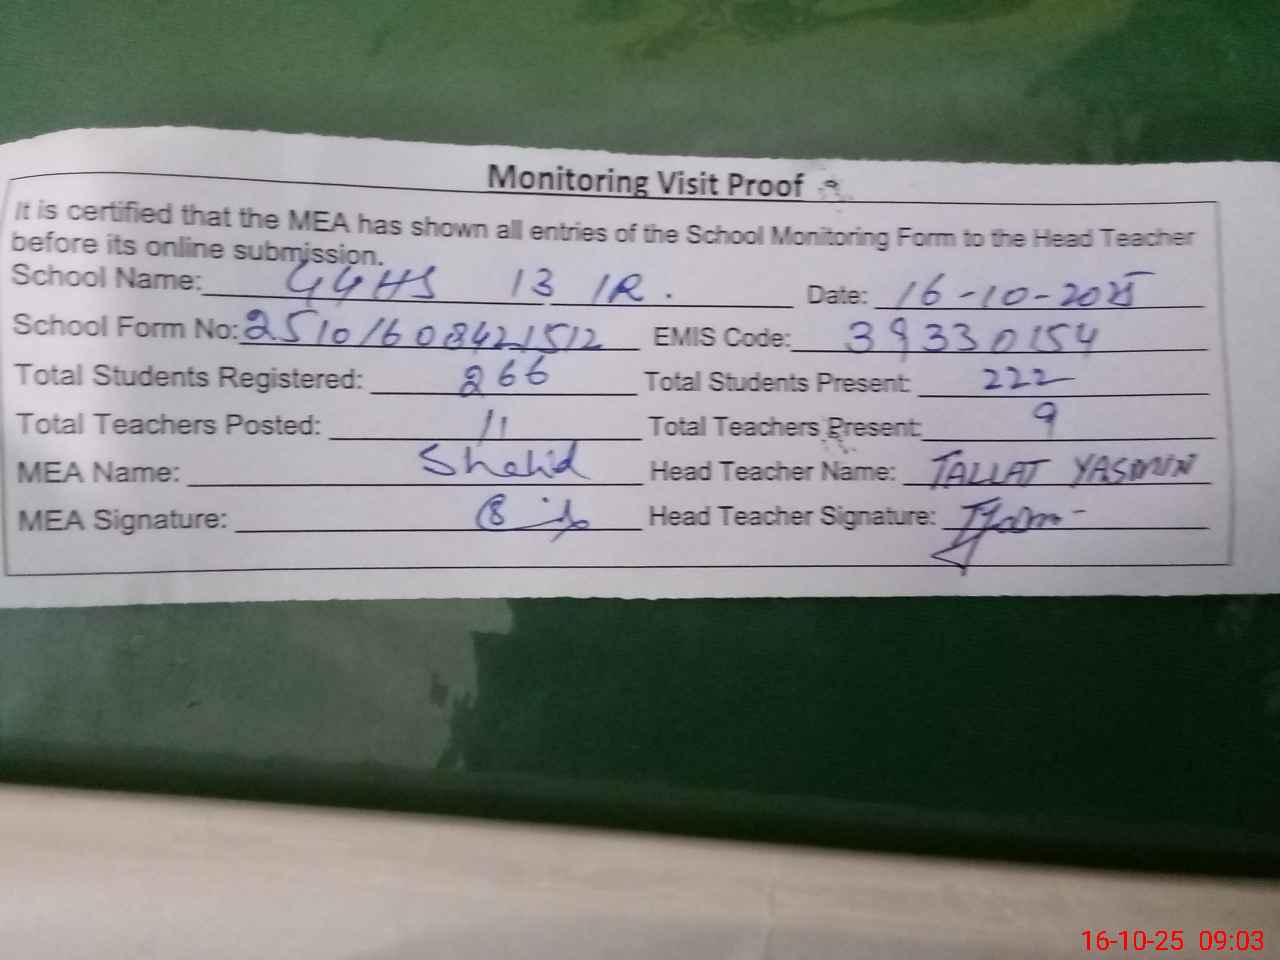 Monitoring Visit Proof
It is certified that the MEA has shown all entries of the School Monitoring Form to the Head Teacher
before its online submission.
School Name: GGHS 13 1R. Date: 16-10-2025
School Form No: 25101608421512 EMIS Code: 39330154
Total Students Registered: 266 Total Students Present: 222
Total Teachers Posted: 11 Total Teachers Present: 9
MEA Name: Shahid Head Teacher Name: TALLAT YASMIN
MEA Signature: Head Teacher Signature:
16-10-25 09:03